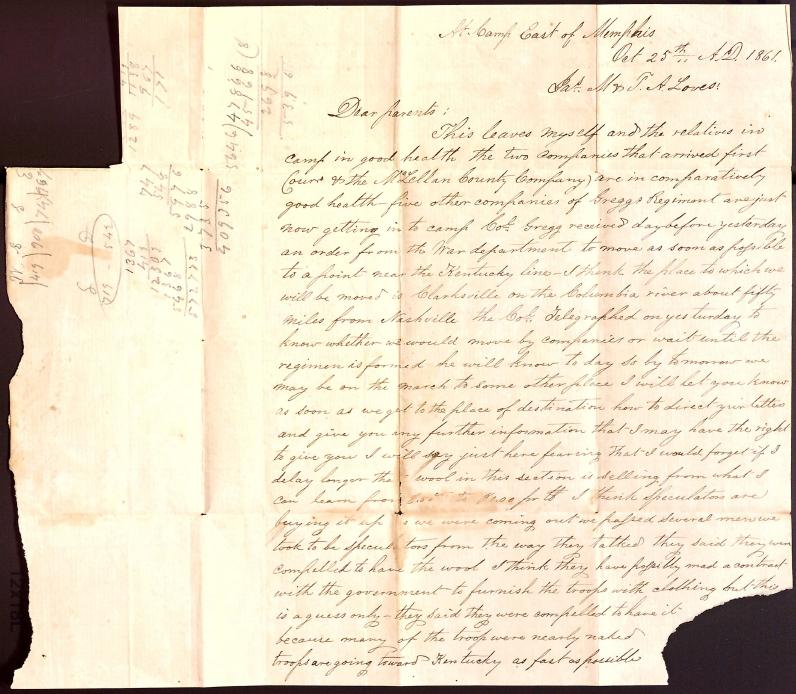 At Camp East of Memphis
Oct 25th A.D. 1861.
Jas. M & T. A Loves:
Dear parents;
This leaves myself and the relatives in
camp in good health the two companies that arrived first
(ours & the McLellan County Company) are in comparatively
good health - five other companies of Greggs Regiment are just
now getting in to camp Col. Gregg received day before yesterday
an order from the War department to move as soon as possible
to a point near the Kentucky line - I think the place to which we
will be moved is Clarksville on the Columbia river about fifty
miles from Nashville the Col. Telegraphed on yesturday to
know whether we would move by companies or wait until the
regimen is formed he will know to day so by tomorrow we
may be on the march to some other place I will let you know
as soon as we get to the place of destination how to direct your letters
and give you any further information that I may have the right
to give you I will say just here fearing that I would forget if I
delay longer that wool in this section is selling from what I
can learn from to pr lb I think speculators are
buying it up as we were coming out we passed several men we
took to be speculators from the way they talked they said they were
compelled to have the wool I think they have possibly mad a contract
with the government to furnish the troops with clothing but this
is a guess only - they said they were compelled to have it
because many of the troop were nearly naked
troops are going toward Kentucky as fast as possible